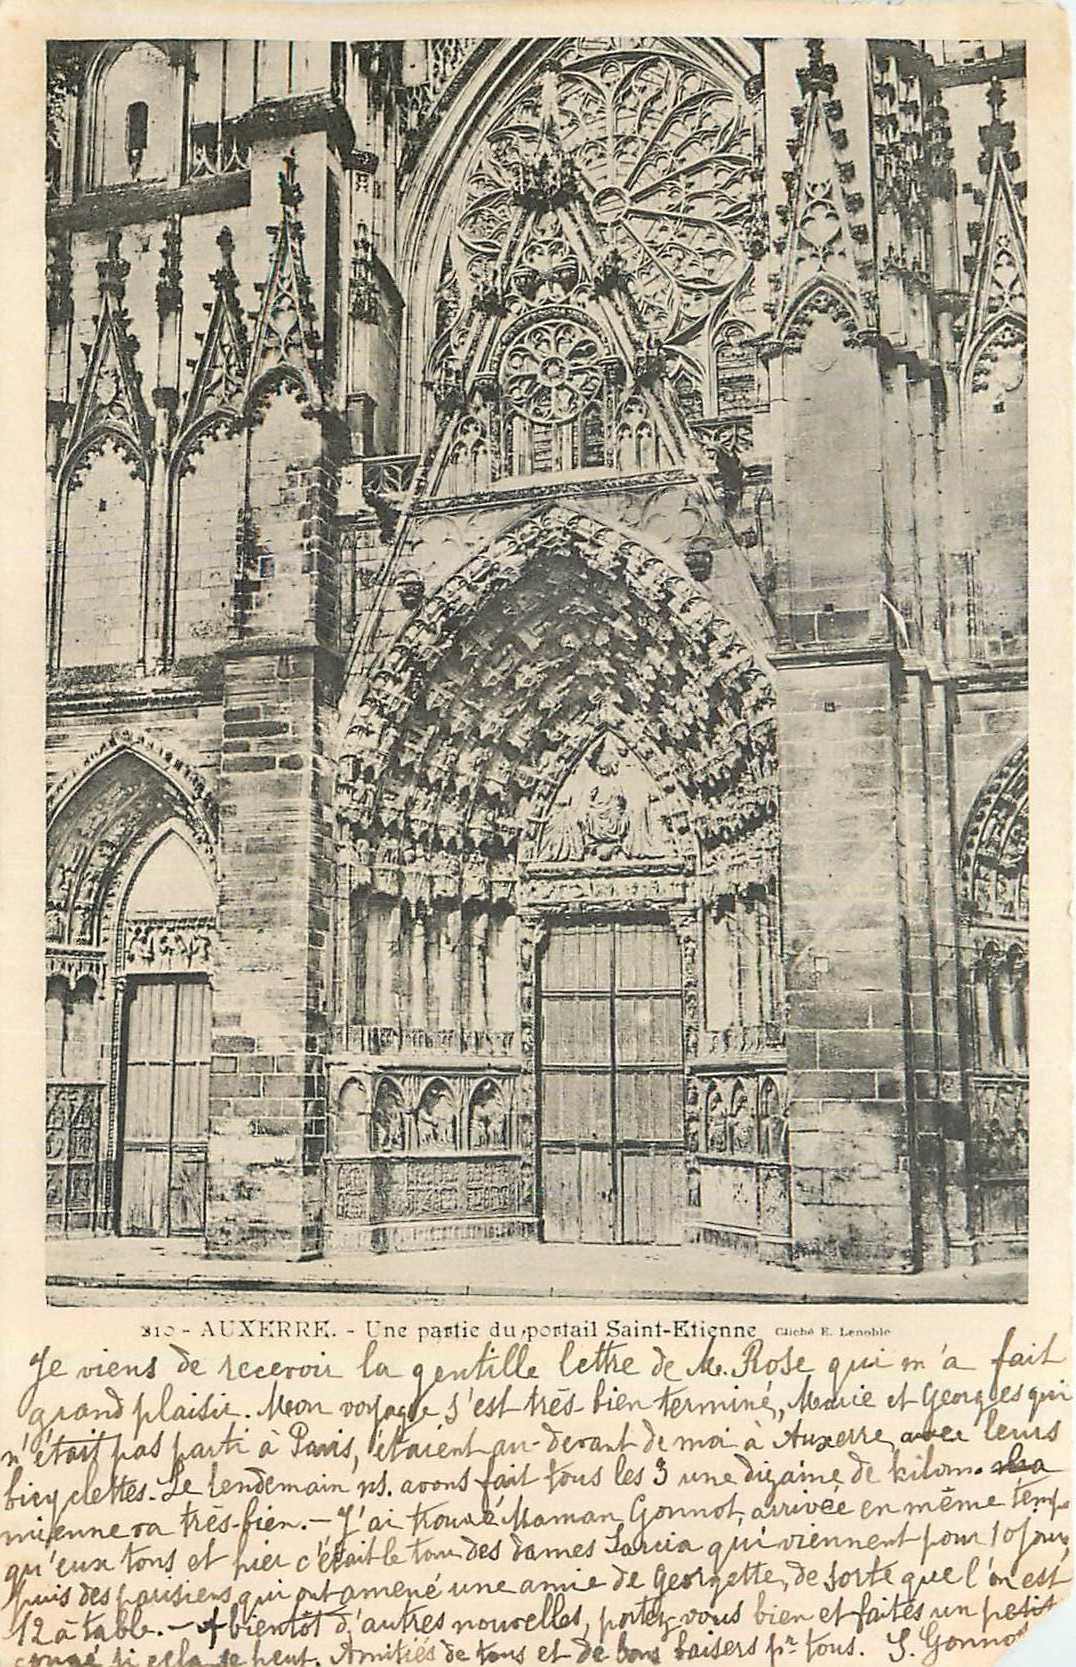 210 - AUXERRE. - Une partie du portail Saint-Etienne Cliché E. Lenoble
Je viens de recevoir la gentille lettre de M. Rose qui m'a fait
grand plaisir. Mon voyage s'est très bien terminé, Marie et Georges qui
n'était pas parti à Paris, étaient au-devant de moi à Auxerre avec leurs
bicyclettes. Le lendemain ns. avons fait tous les 3 une dizaine de kilom. la
mienne va très-bien. - J'ai trouvé Maman Gonnot, arrivée en même temps
qu'eux tous et hier c'était le tour des dames qui viennent pour 10 jours,
puis des parisiens qui ont amené une amie de Georgette, de sorte que l'on est
12 à table. - A bientôt d'autres nouvelles, portez vous bien et faites un petit
congé si cela se peut. Amitiés de tous et de bons baisers pr tous. S. Gonnot